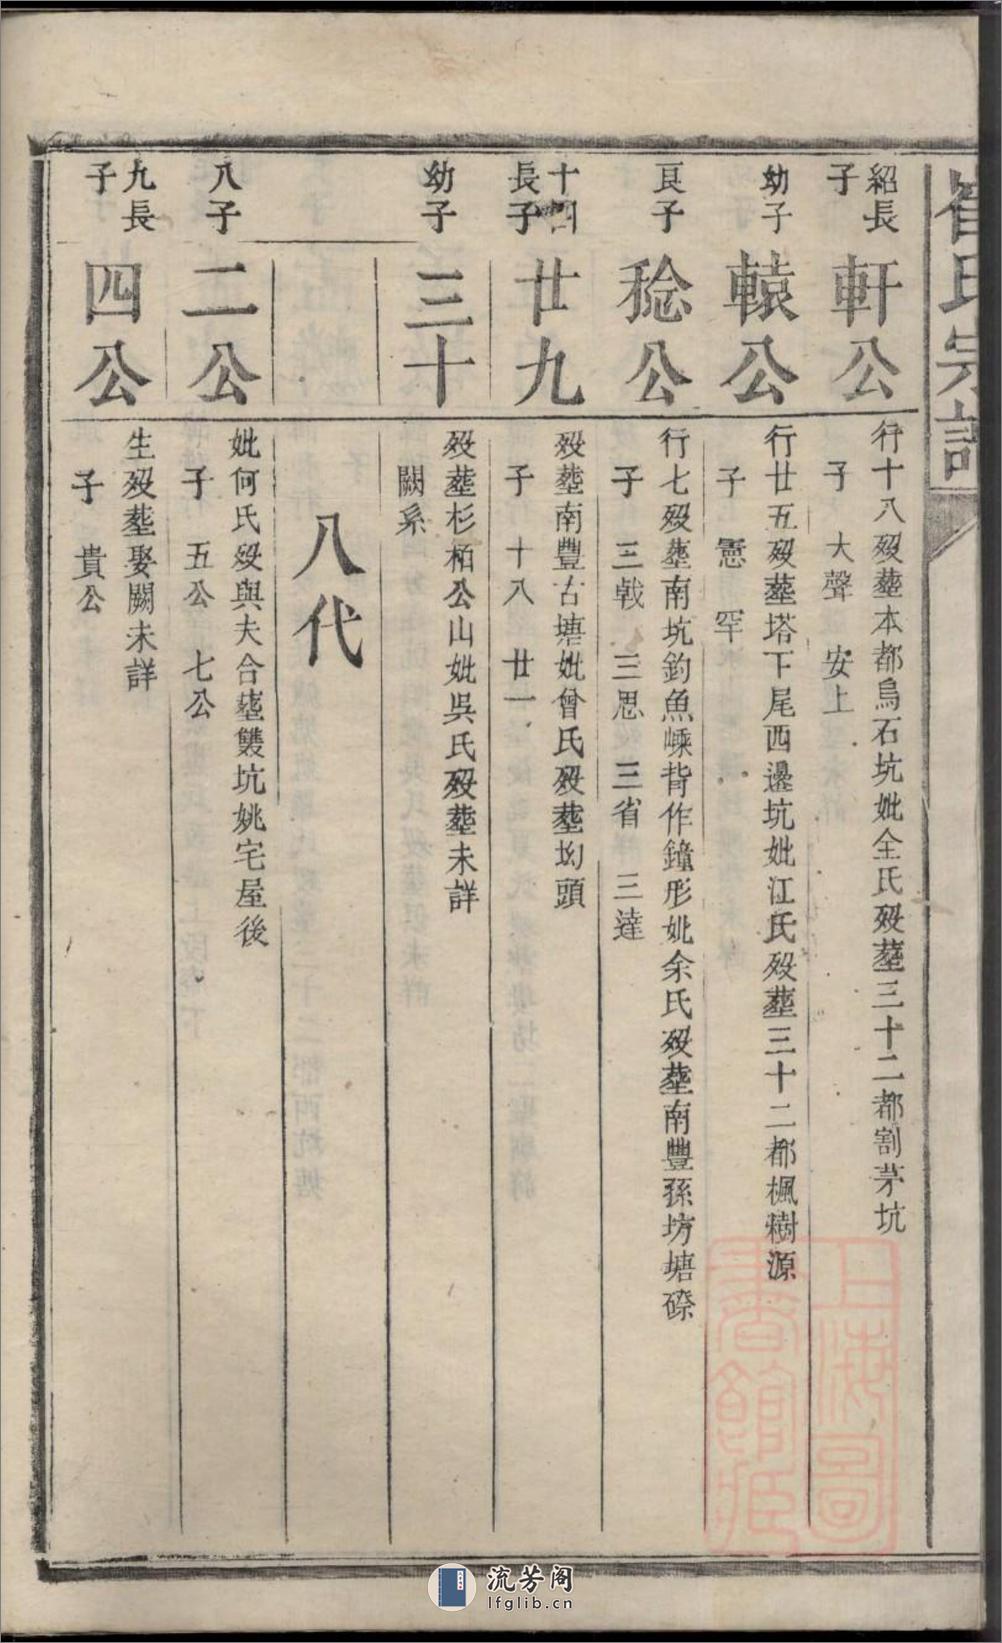 崔氏宗譜
紹長子
軒公
行十八歿塟本都烏石坑妣全氏歿塟三十二都割茅坑
子 大聲 安上
幼子
轅公
行廿五歿塟塔下尾西邊坑妣江氏歿塟三十二都楓樹源
子 憲 罕
良子
稔公
行七歿塟南坑釣魚嵊背作鐘形妣余氏歿塟南豐孫坊塘磜
子 三戟 三思 三省 三達
十四長子
廿九
歿塟南豐古塘妣曾氏歿塟㘭頭
子 十八 廿一
幼子
三十
歿塟杉栢公山妣吳氏歿塟未詳
闕系
八代
八子
二公
妣何氏歿與夫合塟雙坑姚宅屋後
子 五公 七公
九長子
四公
生歿塟娶闕未詳
子 貴公
上海圖書館藏
流芳阁
lfglib.cn